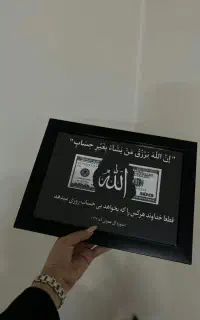 "إِنَّ اللَّهَ يَرْزُقُ مَنْ يَشَاءُ بِغَيْرِ حِسَابٍ"
الله
قطعا خداوند هرکس را که بخواهد بی حساب روزی میدهد